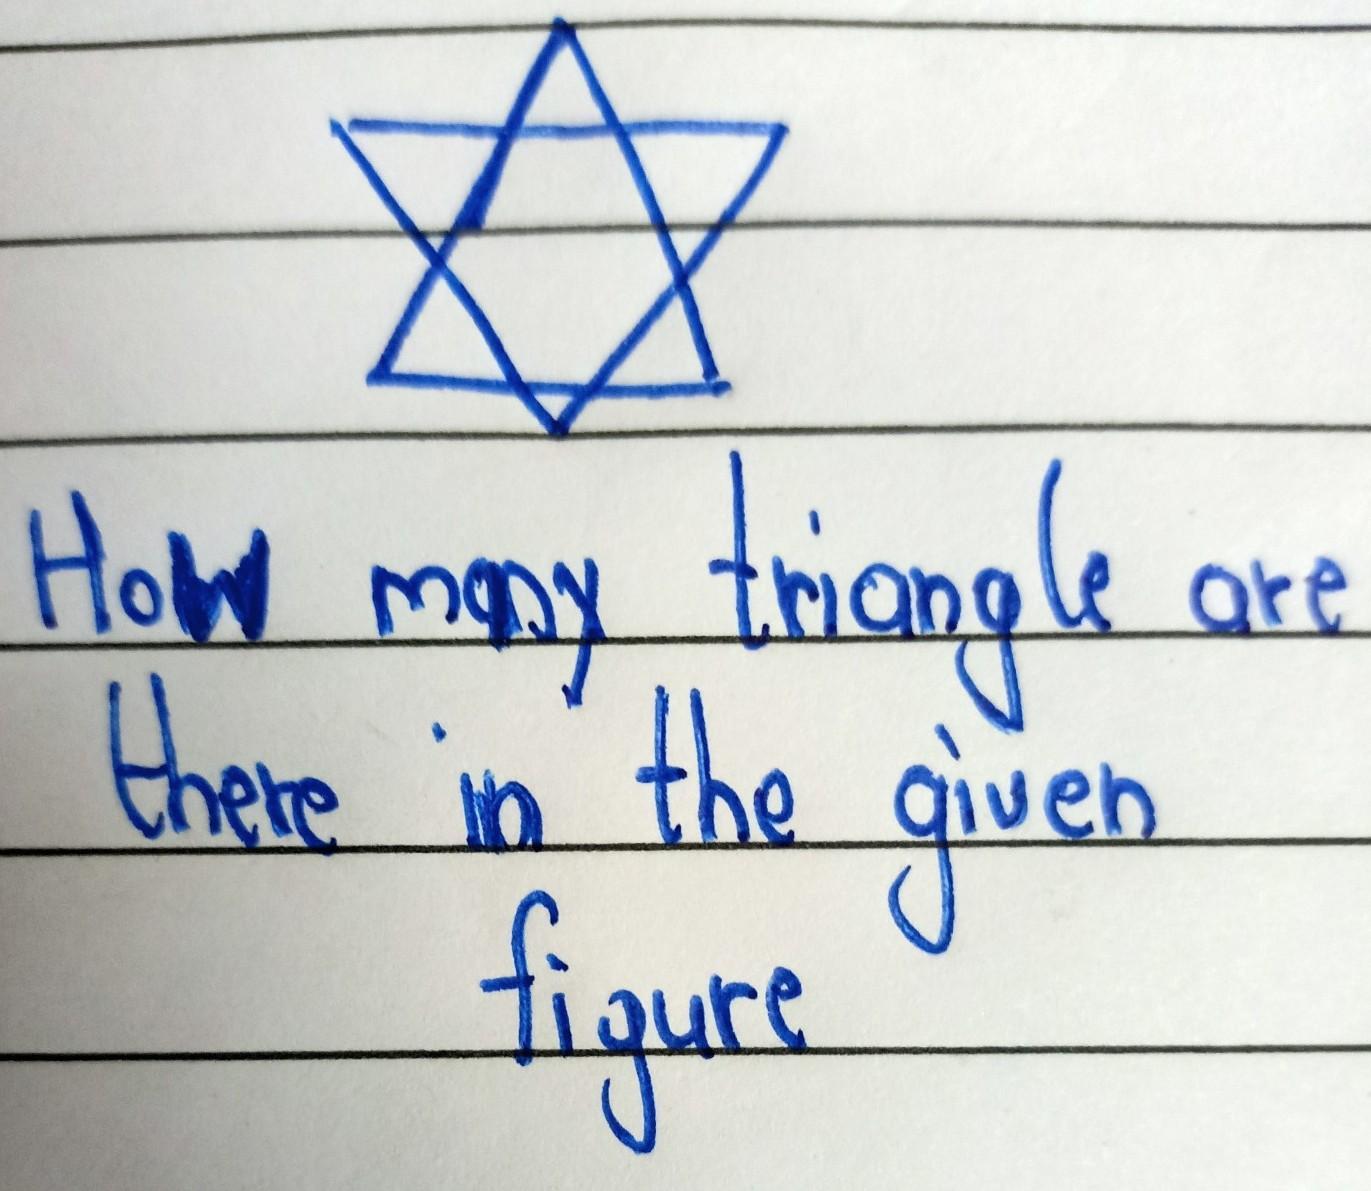 How many triangle are
there in the given
figure